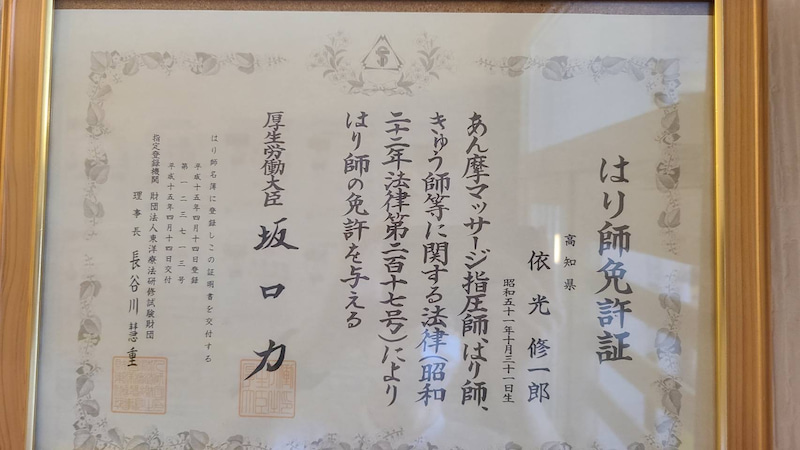 はり師免許証
高知県
依光修一郎
昭和五十一年十月三十一日生
あん摩マッサージ指圧師、はり師、
きゅう師等に関する法律(昭和
二十二年法律第二百十七号)により
はり師の免許を与える
厚生労働大臣 坂口力
はり師名簿に登録しこの証明書を交付する
平成十五年四月十四日登録
第一二三七一三号
平成十五年四月十四日交付
指定登録機関 財団法人東洋療法研修試験財団
理事長 長谷川慧重